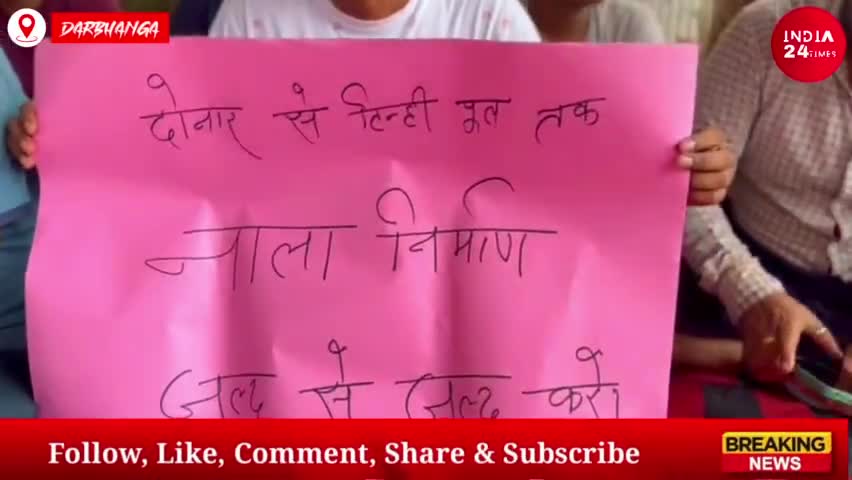 DARBHANGA
INDIA
24 TIMES
दोनार से टिन्ही पूल तक
नाला निर्माण
जल्द से जल्द करो
Follow, Like, Comment, Share & Subscribe
BREAKING
NEWS